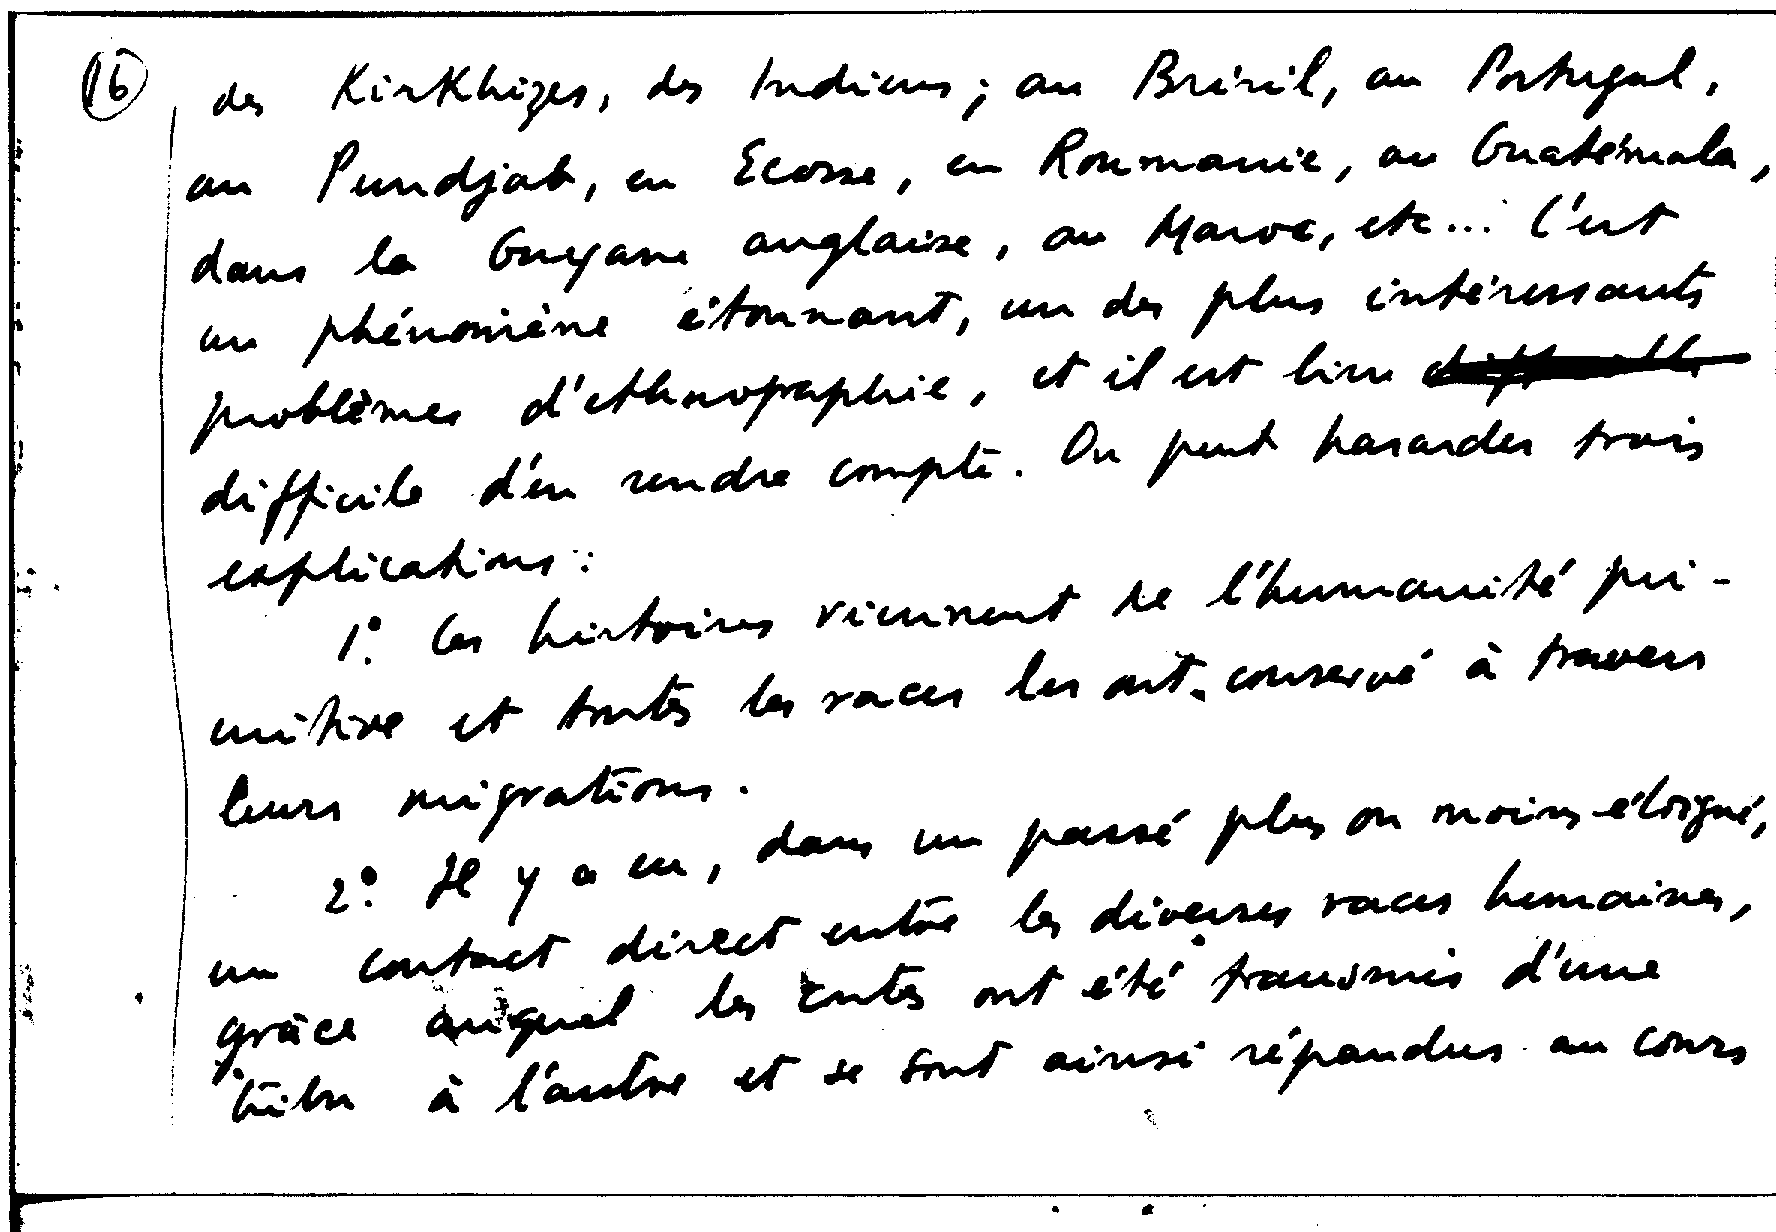 16
des Kirkhizes, des Indiens ; au Brésil, au Portugal,
au Pundjab, en Ecosse, en Roumanie, au Guatémala,
dans la Guyane anglaise, au Maroc, etc... C'est
un phénomène étonnant, un des plus intéressants
problèmes d'ethnographie, et il est bien
difficile d'en rendre compte. On peut hasarder trois
explications :
1°. Ces histoires viennent de l'humanité pri-
mitive et toutes les races les ont conservé à travers
leurs migrations.
2°. Il y a eu, dans un passé plus ou moins éloigné,
un contact direct entre les diverses races humaines,
grâce auquel les contes ont été transmis d'une
tribu à l'autre et se sont ainsi répandus au cours